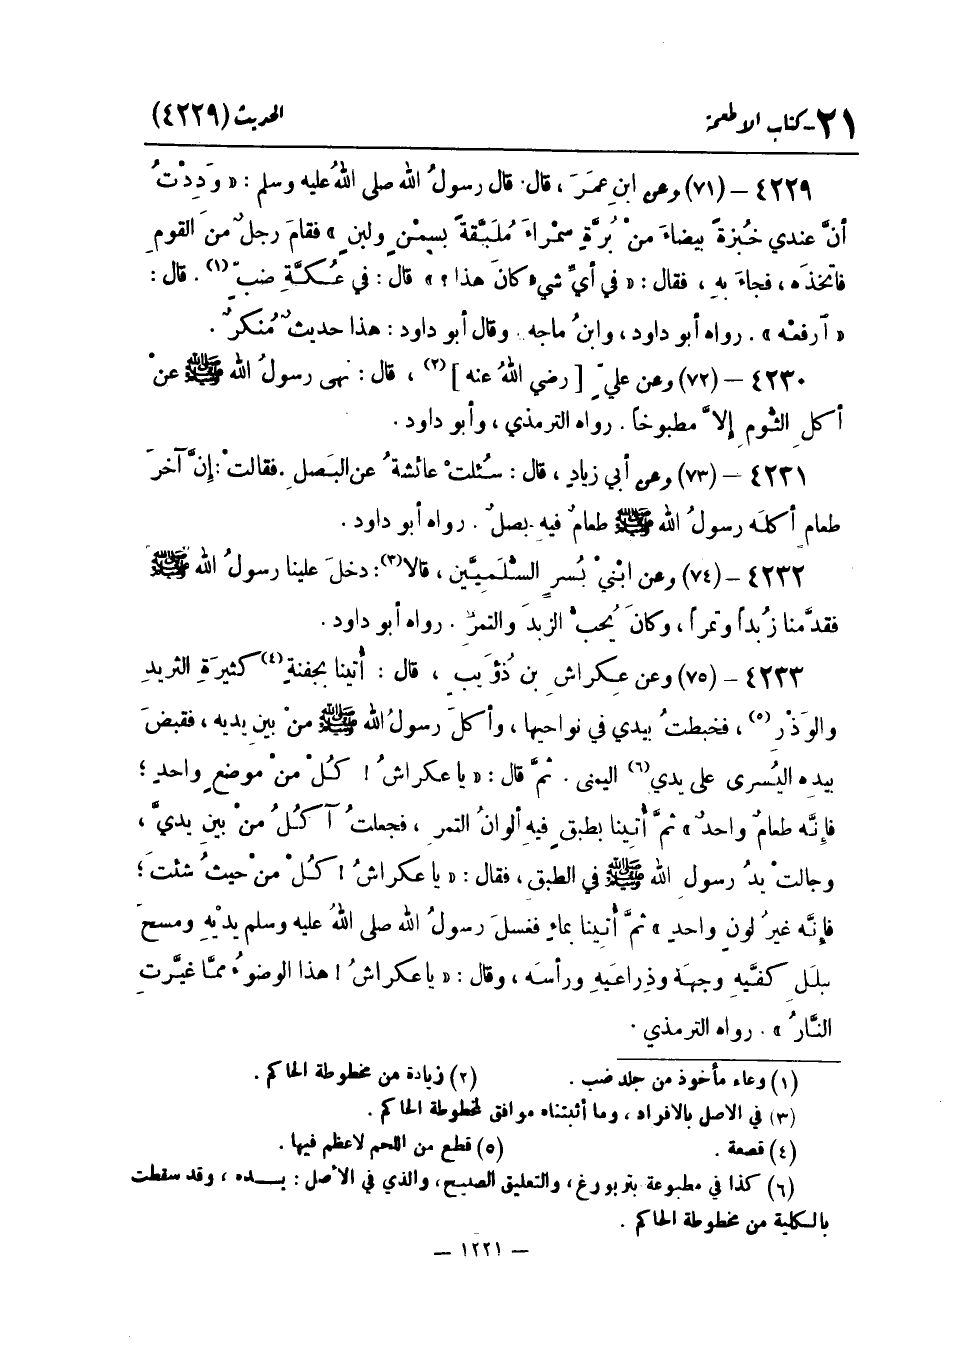 ٢١ - كتاب الاطعمة الحديث (٤٢٢٩)
٤٢٢٩ – (٧١) وعن ابنِ عمَرَ ، قال: قال رسولُ اللهِ صلى اللهُ عليه وسلم : « وَدِدْتُ
أنَّ عندي خُبزةً بيضاءَ منْ بُرَّةٍ سمراءَ مُلَبَّقةً بسمنٍ ولبنٍ » فقامَ رجلٌ منَ القومِ
فاتخذَه ، فجاءَ بهِ ، فقال : « في أيِّ شيء كانَ هذا ؟ » قال : في عُكَّةِ ضبّ ٍ(١) . قال :
« ارفعْه » . رواه أبو داود ، وابنُ ماجه . وقال أبو داود : هذا حديثٌ مُنكرٌ .
٤٢٣٠ – (٧٢) وعن عليّ ٍ [ رضي اللهُ عنه ](٢) ، قال : نهى رسولُ الله ﷺ عنْ
أكلِ الثُّومِ إِلاَّ مطبوخاً . رواه الترمذي ، وأبو داود .
٤٢٣١ – (٧٣) وعن أبي زيادٍ ، قال : سُئلتْ عائشةُ عن البَصلِ . فقالتْ : إِنَّ آخرَ
طعامٍ أكلَه رسولُ اللهِ ﷺ طعامٌ فيهِ بصلٌ . رواه أبو داود .
٤٢٣٢ – (٧٤) وعن ابْنيْ بُسرٍ السُّلَمِيَّينِ ، قالا(٣) : دخلَ علينا رسولُ اللهِ ﷺ
فقدَّمنا زُبداً وتمراً ، وكانَ يُحبُّ الزبدَ والتمرَ . رواه أبو داود .
٤٢٣٣ – (٧٥) وعن عِكراشِ بنِ ذُؤَيبٍ ، قال : أُتينا بجفنةٍ(٤) كثيرَةِ الثريدِ
والوَذْرِ(٥) ، فخبطتُ بيدي في نواحيها ، وأكلَ رسولُ الله ﷺ منْ بينِ يديه ، فقبضَ
بيدِه اليُسرى على يدي(٦) اليمنى . ثمَّ قال : « يا عكراشُ ! كُلْ منْ موضعٍ واحدٍ ؛
فإِنَّه طعامٌ واحدٌ » ثمَّ أُتينا بطبقٍ فيهِ ألوانُ التمرِ ، فجعلتُ آكُلُ منْ بينِ يديَّ ،
وجالتْ يدُ رسولِ الله ﷺ في الطبقِ ، فقال : « يا عكراشُ ! كُلْ منْ حيثُ شئتَ ؛
فإِنَّه غيرُ لونٍ واحدٍ » ثمَّ أُتينا بماءٍ فغسلَ رسولُ اللهِ صلى اللهُ عليه وسلم يديْهِ ومسحَ
ببلَلِ كفَّيهِ وجهَهُ وذِراعَيهِ ورأسَه ، وقال : « يا عكراشُ ! هذا الوضوءُ ممَّا غيَّرتِ
النَّارُ » . رواه الترمذي .
(١) وعاء مأخوذ من جلد ضب . (٢) زيادة من مخطوطة الحاكم .
(٣) في الاصل بالافراد ، وما أثبتناه موافق لمخطوطة الحاكم .
(٤) قصعة . (٥) قطع من اللحم لاعظم فيها .
(٦) كذا في مطبوعة بتربورغ ، والتعليق الصبيح ، والذي في الأصل : يده ، وقد سقطت
بالكلية من مخطوطة الحاكم .
– ١٢٢١ –